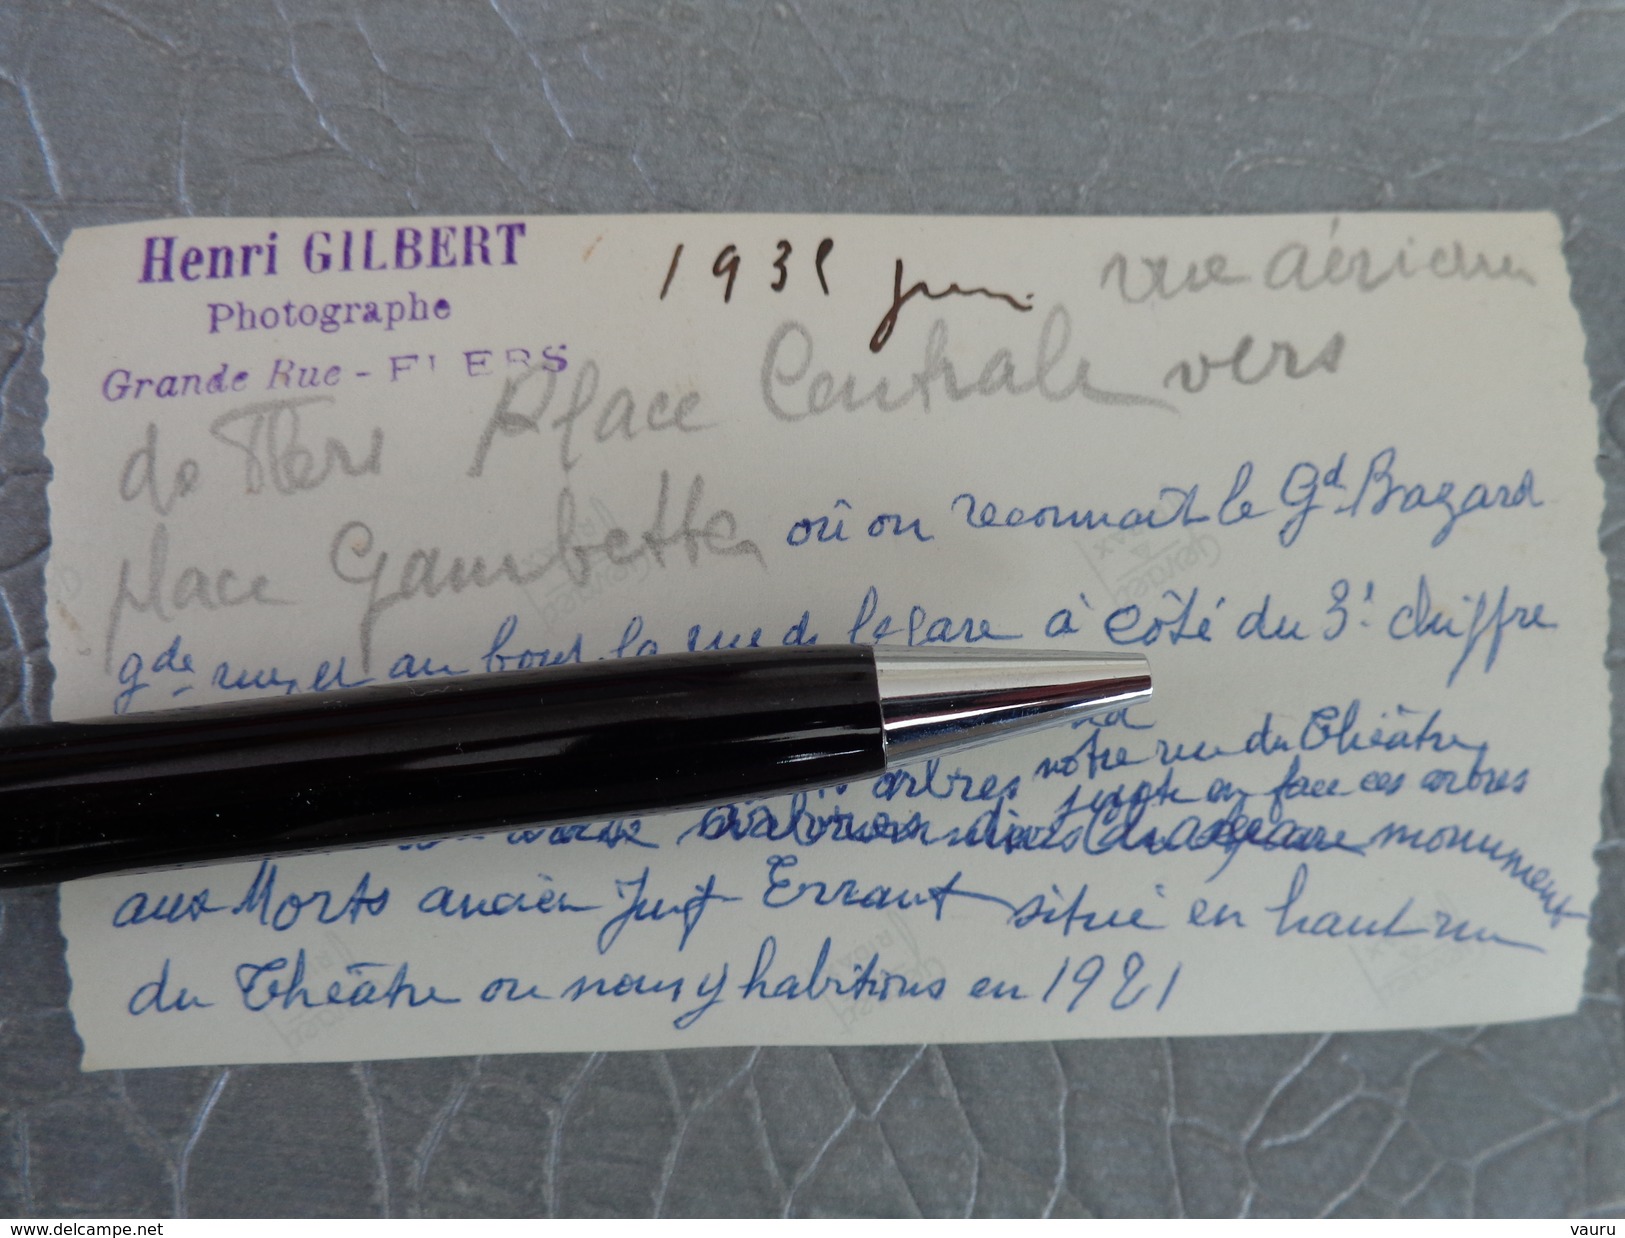 Henri GILBERT
Photographe
Grande Rue - FLERS
1935 juin vue aérienne
de Flers Place Centrale vers
place Gambetta où on reconnait le Gd Bazard
gde rue, et au bout la rue de la gare à côté du 3e chiffre
arbres notre rue du Théâtre
en face ces arbres
monument
aux Morts ancien Juif Errant situé en haut rue
du Théâtre ou nous y habitions en 1921
www.delcampe.net
vauru